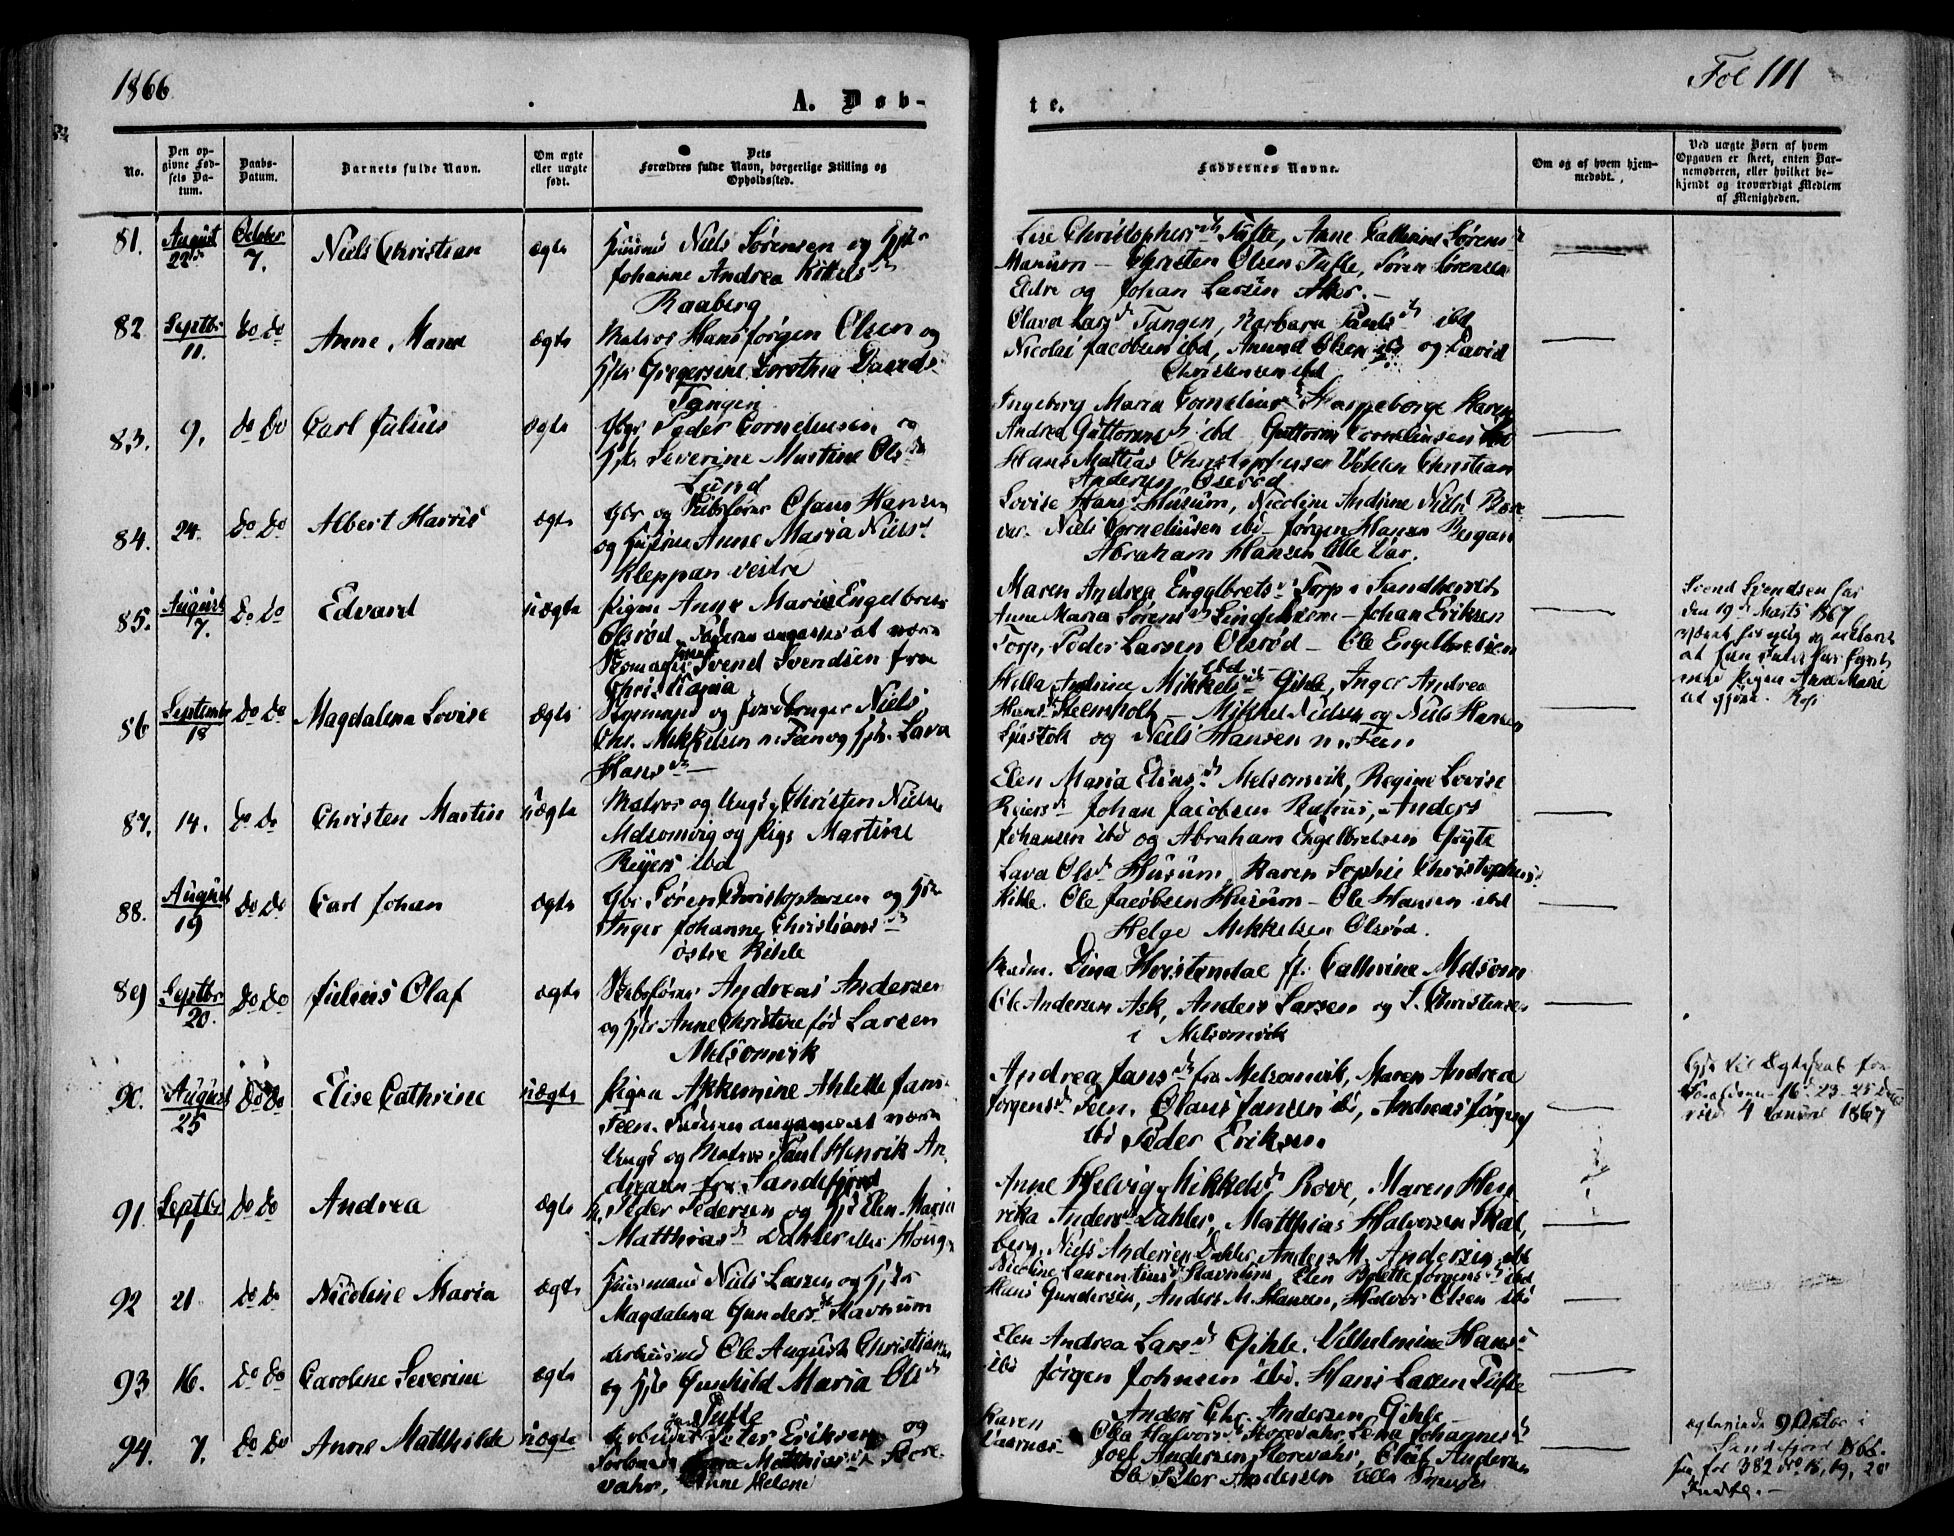 1866
Fol 111
A. Døb-
te.
No.
Den op-
givne Fød-
sels Da-
tum.
Daabs-
Datum.
Barnets fulde Navn.
Om ægte
eller uægte
født.
Dets
Forældres fulde Navn, borgerlige Stilling og
Opholdssted.
Faddernes Navne.
Om og af hvem hjem-
medøbt.
Ved uægte Børn af hvem
Opgaven er skeet, enten Bar-
nemoderen, eller hvilket be-
kjendt og troværdigt Medlem
af Menigheden.
81. August 22 October 7. Niels Christian ægte Niels Sørensen og
Johanne Andrea Kittels
Raaberg
Lise Christophers Tufte, Anne Cathrine Sørens
Manum – Christen Olsen Tufte, Søren Sørensen
og Johan Larsen Aker. –
82 Septbr 11. do do Anne Marie ægte Matros Hans Jørgen Olsen og
Gregersine Dorothea
Tangen
Olava Lars Tangen, Barbara Pauls ibd
Nicolai Jacobsen ibd, Amund Olsen ibd og David
Christensen ibd
83. 9. do do Carl Julius ægte Gbr Peder Corneliusen og
Severine Martine Ols
Lund
Ingeborg Maria Cornelius Karen
Andrea Guttorms ibd Guttorm Corneliusen ibd
Hans Mathias Christophersen Christian
Andersen Olsrød
84. 24. do do Albert Harris ægte Gbr og Skibsfører Claus Hansen
og Anne Maria Niels
Kleppan vestre
Lovise Hans Husum, Nicoline Andrine Niels
Niels Corneliusen ibd – Jørgen Hansen Bergan
Abraham Hansen lille Var.
85. August 7. do do Edvard uægte Pigen Anne Marie Engelbrets
Olsrød. Faderen angaves at være
Skomager Svend Svendsen fra
Christiania
Maren Andrea Engelbrets Torp i Sandherred
Anne Maria Sørens – Johan Eriksen
Torp, Peder Larsen Olsrød – Ole Engelbretsen
ibd
Svend Svendsen har
den 19 Marts 1867
Anne Marie
at gjøre.
86 Septembr 18 do do Magdalena Lovise ægte og Jordbruger Niels
Chr. Mikkelsen n. Feen og Lava
Hans –
Helle Andrine Mikkels Gihle, Inger Andrea
Hans – Mikkel Nielsen og Niels Hansen
og Niels Hansen n. Feen
87. 14. do do Christen Martin uægte Matros og Ungk. Christen Niels
Melsomvig og Pige Martine
Reyers ibd
Elen Maria Elias Melsomvik, Regine Lovise
Reiers – Johan Jacobsen Anders
Johansen ibd og Abraham Engelbretsen
88. August 19 do do Carl Johan ægte Gbr Søren Christophersen og
Inger Johanne Christians
østre Kihle
Lava Ols Husum, Karen Sophie Christophers
Kihle. Ole Jacobsen Husum – Ole Hansen ibd
Helge Mikkelsen Olsrød.
89 Septbr 20. do do Julius Olaf ægte Skibsfører Andreas Andersen
og Anne Christine fød Larsen
Melsomvik
Madm. Dina fr. Cathrine Melsom
Ole Andersen Ask, Anders Larsen og S. Christensen
i Melsomvik
90. August 25 do do Elise Cathrine uægte Pigen Ahlette Jans
Feen. Faderen angaves at være
Ungk og Matros Paul Henrik An-
dreasen fra Sandefjord
Andrea Jans fra Melsomvik, Maren Andrea
Jørgens Feen. Olaus Jansen ibd, Andreas Jørgens
ibd Peder Eriksen
til Ægteskab for
16 – 23 – 25 Dec
4 Januar 1867
91. Septbr 1 do do Andrea ægte Peder Pedersen og Elen Maria
Matthias Dahler eller Houge
Anne Helvig Mikkels Rove, Maren Hen-
rika Anders Dahler, Matthias Halvorsen Skal-
berg, Niels Andersen Dahler, Anders M. Andersen, ibd
92 21 do do Nicoline Maria ægte Huusmand Niels Larsen og
Magdalena Gunders Havnum
Nicoline Laurentius Elen Bolette Jørgens ibd
Hans Gundersen, Anders M. Hansen, Halvor Olsen ibd
93 16. do do Caroline Severine ægte Ole August Christiansen
og Gunhild Maria Ols
Tufte
Elen Andrea Lars Gihle. Vilhelmine Hans
ibd Jørgen Johnsen ibd. Hans Larsen Tufte
Anders Chr. Andersen Gihle
94. 7. do do Anne Mathilde uægte Arbeider Peter Eriksen og
Matthias Store-
vahr. Anne Helene
Karen
Halvors Storevahr, Lena Johannes
Joel Andersen Storevahr, Oluf Andersen
Ole Peter Andersen
9 Octbr i
Sandefjord 1866.
fol 382 No 18, 19, 20